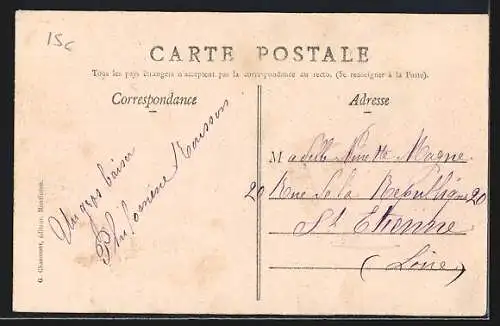 15c
CARTE POSTALE
Tous les pays étrangers n'acceptent pas la correspondance au recto. (Se renseigner à la Poste).
Correspondance
Adresse
Un gros baiser
Philomène
Madelle Ninette Magne
20 Rue de la République 20
St Etienne
(Loire)
éditeur,